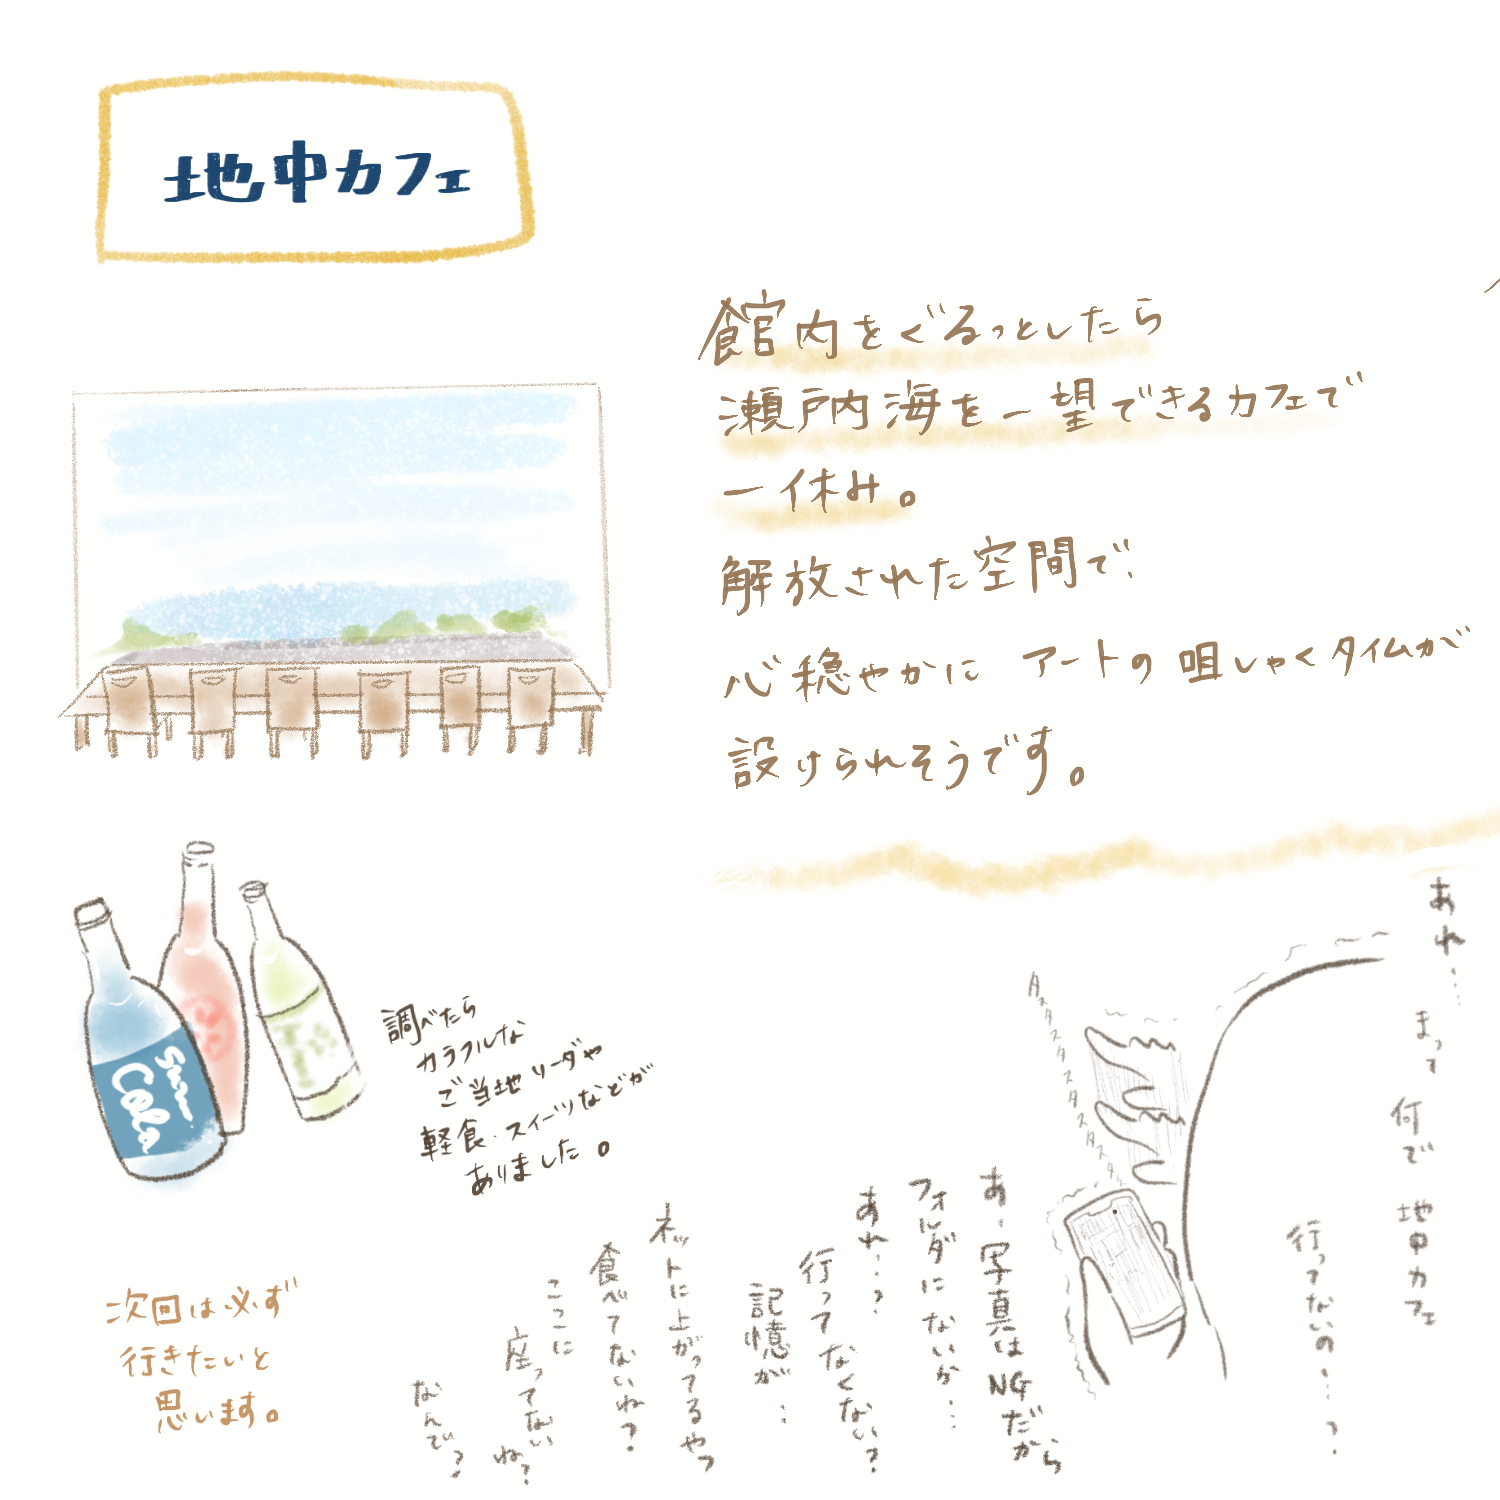 地中カフェ
館内をぐるっとしたら
瀬戸内海を一望できるカフェで
一休み。
解放された空間で、
心穏やかに アートの 咀しゃくタイムが
設けられそうです。
調べたら
カラフルな
ご当地ソーダや
軽食・スイーツなどが
ありました。
Cola
次回は必ず
行きたいと
思います。
あれ…
まって 何で 地中カフェ
行ってないの…?
タスタスタスタスタスタスタ
あ、写真はNGだから
フォルダにないか…
あれ…?
行ってなくない?
記憶が…
ネットに上がってるやつ
食べてないね?
ここに
座ってないね?
なんで?